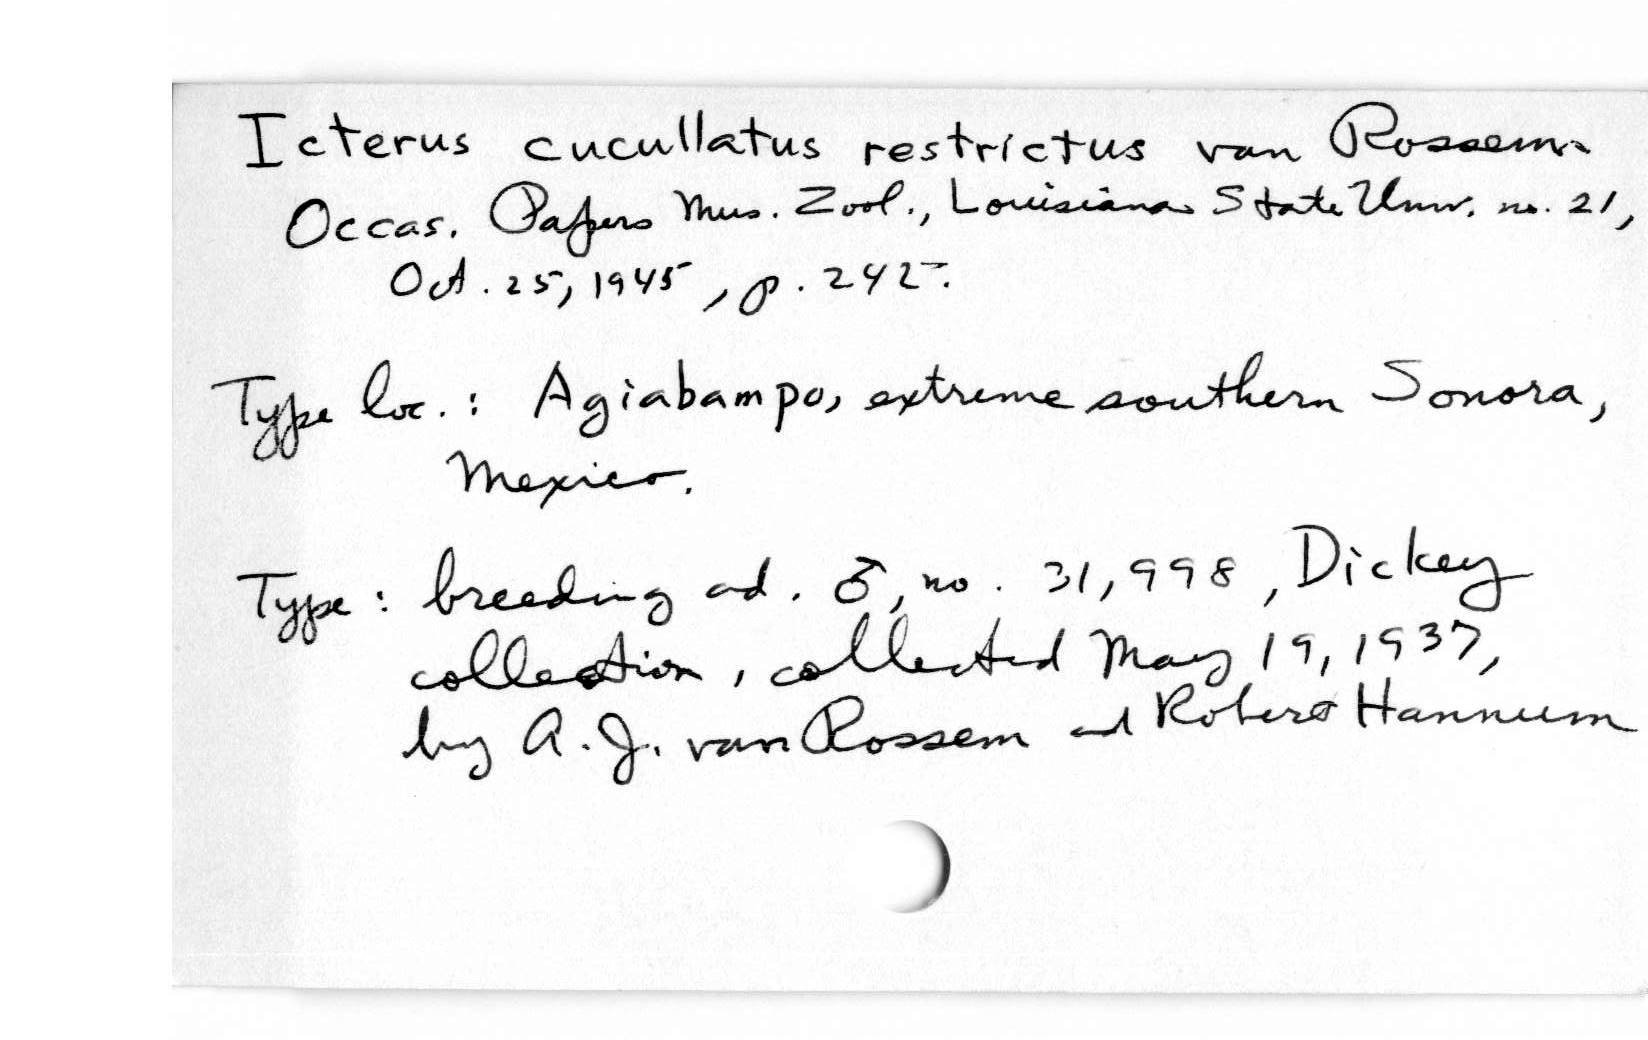 Icterus cucullatus restrictus van Rossem
Occas. Papers Mus. Zool., Louisiana State Univ. no. 21,
Oct. 25, 1945, p. 242.
Type loc.: Agiabampo, extreme southern Sonora,
Mexico.
Type: breeding ad. ♂, no. 31,998, Dickey
collection, collected May 19, 1937,
by A. J. van Rossem and Robert Hannum